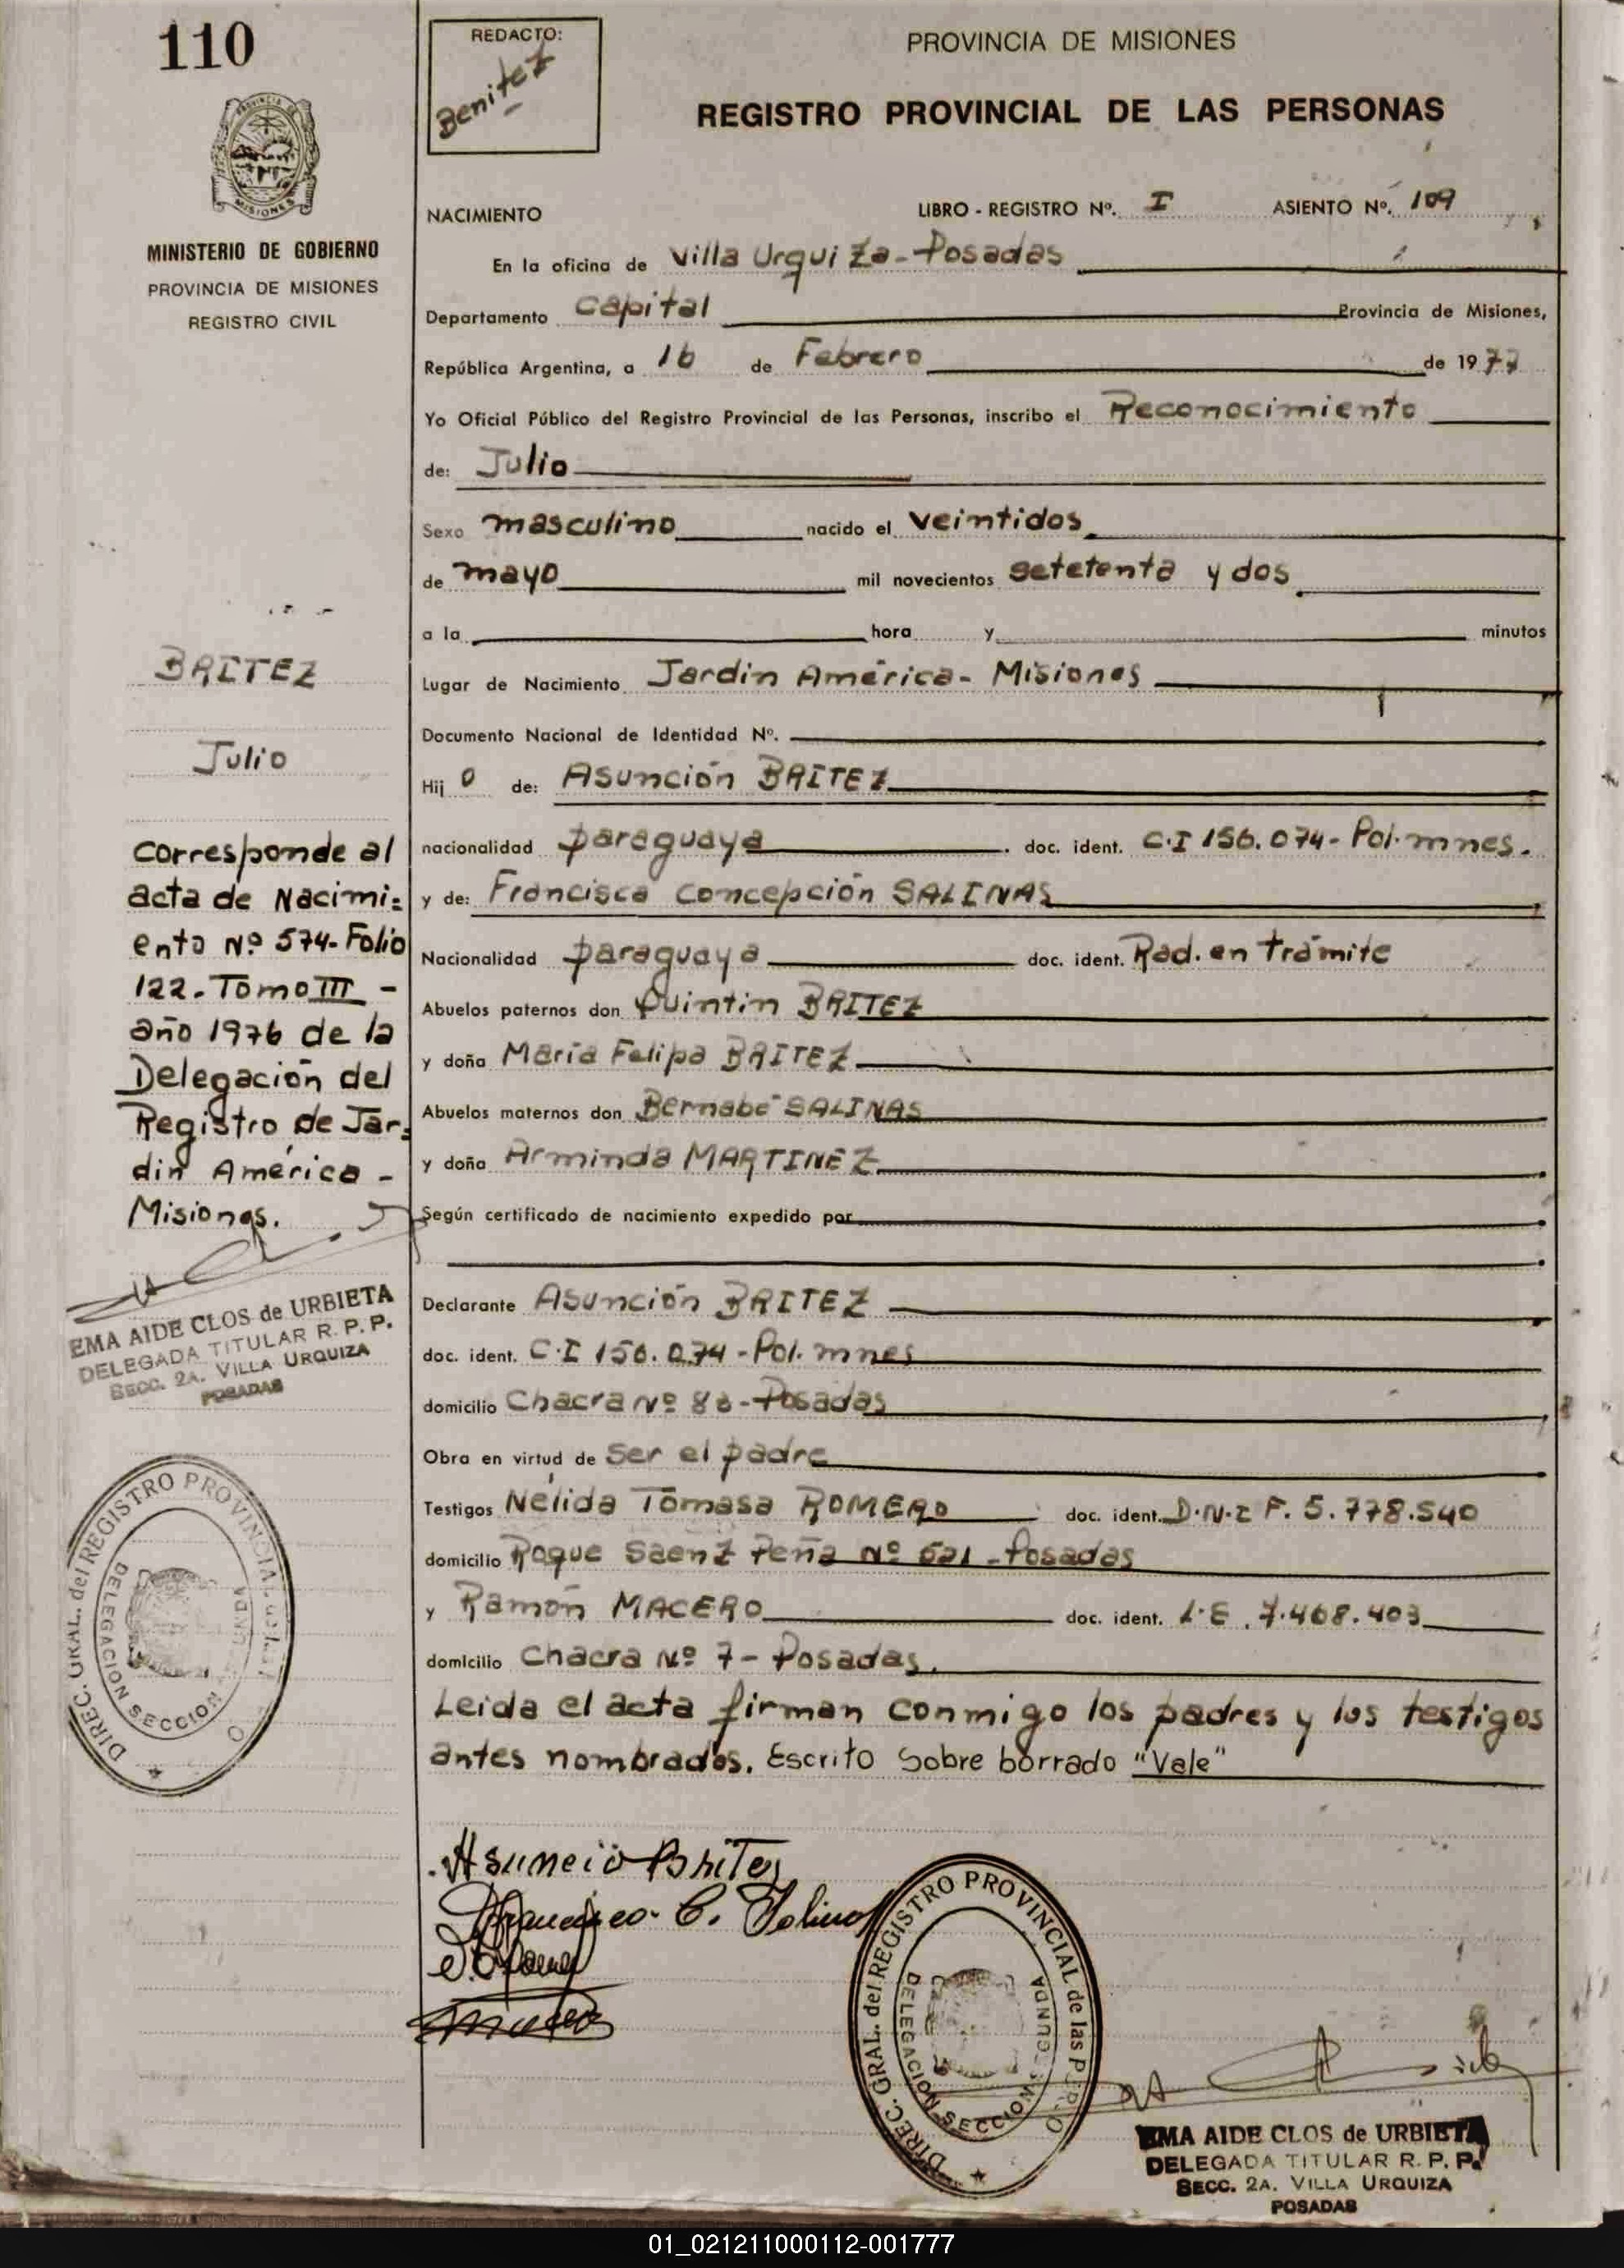 110
REDACTO:
Benitez
PROVINCIA DE MISIONES
REGISTRO PROVINCIAL DE LAS PERSONAS
MISIONES
MINISTERIO DE GOBIERNO
PROVINCIA DE MISIONES
REGISTRO CIVIL
NACIMIENTO LIBRO - REGISTRO Nº. I ASIENTO Nº. 109
En la oficina de Villa Urquiza - Posadas
Departamento Capital Provincia de Misiones,
República Argentina, a 16 de Febrero de 1977
Yo Oficial Público del Registro Provincial de las Personas, inscribo el Reconocimiento
de: Julio
Sexo masculino nacido el veintidos
de mayo mil novecientos setetenta y dos
a la hora y minutos
Lugar de Nacimiento Jardin América - Misiones
Documento Nacional de Identidad Nº.
Hij o de: Asunción BRITEZ
nacionalidad paraguaya doc. ident. C.I 156.074 - Pol. mnes.
y de: Francisca Concepción SALINAS
Nacionalidad paraguaya doc. ident. Rad. en trámite
Abuelos paternos don Quintin BRITEZ
y doña María Felipa BRITEZ
Abuelos maternos don Bernabé SALINAS
y doña Arminda MARTINEZ
Según certificado de nacimiento expedido por
Declarante Asunción BRITEZ
doc. ident. C.I 156.074 - Pol. mnes
domicilio Chacra Nº - Posadas
Obra en virtud de ser el padre
Testigos Nélida Tomasa ROMERO doc. ident. D.N.I F. 5.778.540
domicilio Roque Saenz Peña Nº 621 - Posadas
y Ramón MACERO doc. ident. L.E. 7.468.403
domicilio Chacra Nº 7 - Posadas.
Leida el acta firman conmigo los padres y los testigos
antes nombrados. Escrito Sobre borrado "Vale"
BRITEZ
Julio
Corresponde al
acta de Nacimi=
ento Nº 574 - Folio
122. Tomo III -
año 1976 de la
Delegación del
Registro de Jar=
din América -
Misiones.
EMA AIDE CLOS de URBIETA
DELEGADA TITULAR R. P. P.
SECC. 2A. VILLA URQUIZA
POSADAS
DIREC. GRAL. del REGISTRO PROVINCIAL
DELEGACION SECCION
Asuncio Britez
Francisca C. Salinas
DIREC. GRAL. del REGISTRO PROVINCIAL de las
DELEGACION SECCION SEGUNDA
EMA AIDE CLOS de URBIETA
DELEGADA TITULAR R. P. P.
SECC. 2A. VILLA URQUIZA
POSADAS
01_021211000112-001777